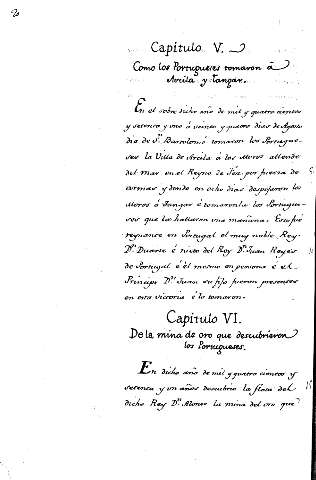 Capítulo V.
Como los Portugueses tomaron á
Arcila y Tangar.
En el sobre dicho año de mil y quatro cientos
y setenta y uno á veinte y quatro dias de Agosto
dia de Sn. Bartolomé tomaron los Portugue-
ses la Villa de Arcila á los Moros allende
del mar en el Reyno de Fez por fuerza de
armas y donde en ocho dias despojaron los
Moros á Tangar é tomaronla los Portugue-
ses que la hallaron una mañana. Esto fué
reynante en Portugal el muy noble Rey
Dn. Duarte é nieto del Rey Dn. Juan Reyes
de Portugal é él mesmo en persona é el
Principe Dn. Juan su fijo fueron presentes
en esta victoria é lo tomaron.
Capítulo VI.
De la mina de oro que descubrieron
los Portugueses.
En dicho año de mil y quatro cientos y
setenta y un años descubrio la flota del
dicho Rey Dn. Alonso la mina del oro que